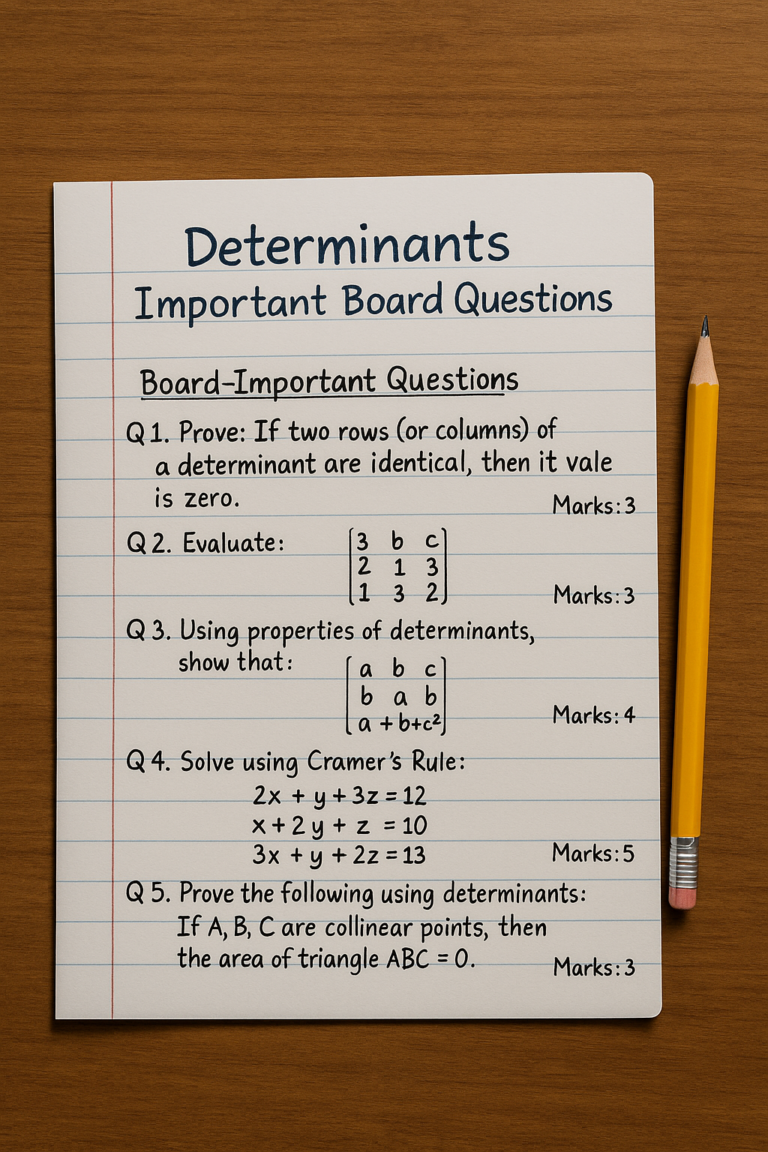 Determinants
Important Board Questions
Board-Important Questions
Q1. Prove: If two rows (or columns) of
a determinant are identical, then it vale
is zero.
Marks:3
Q2. Evaluate:
3 b c
2 1 3
1 3 2
Marks:3
Q3. Using properties of determinants,
show that:
a b c
b a b
a + b+c²
Marks:4
Q4. Solve using Cramer's Rule:
2x + y + 3z = 12
x + 2y + z = 10
3x + y + 2z = 13
Marks:5
Q5. Prove the following using determinants:
If A, B, C are collinear points, then
the area of triangle ABC = 0.
Marks:3